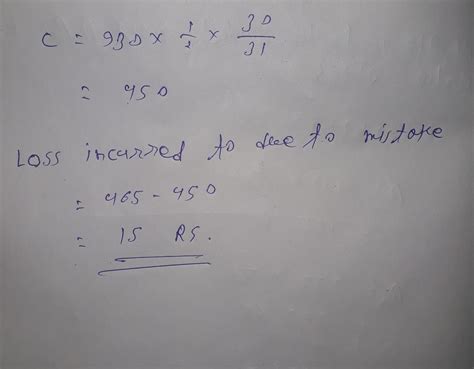 C = 930 × 1/2 × 30/31
= 450
Loss incurred to due to mistake
= 465 - 450
= 15 RS.